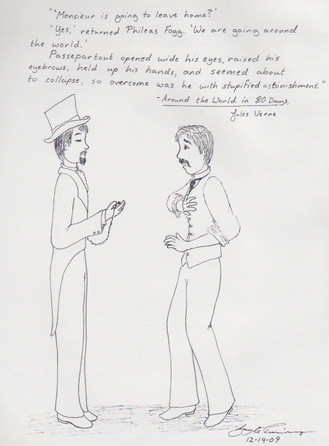 "'Monsieur is going to leave home?'
'Yes,' returned Phileas Fogg. 'We are going around
the world.'
Passepartout opened wide his eyes, raised his
eyebrows, held up his hands, and seemed about
to collapse, so overcome was he with stupified astonishment."
- Around the World in 80 Days,
Jules Verne
12-14-09